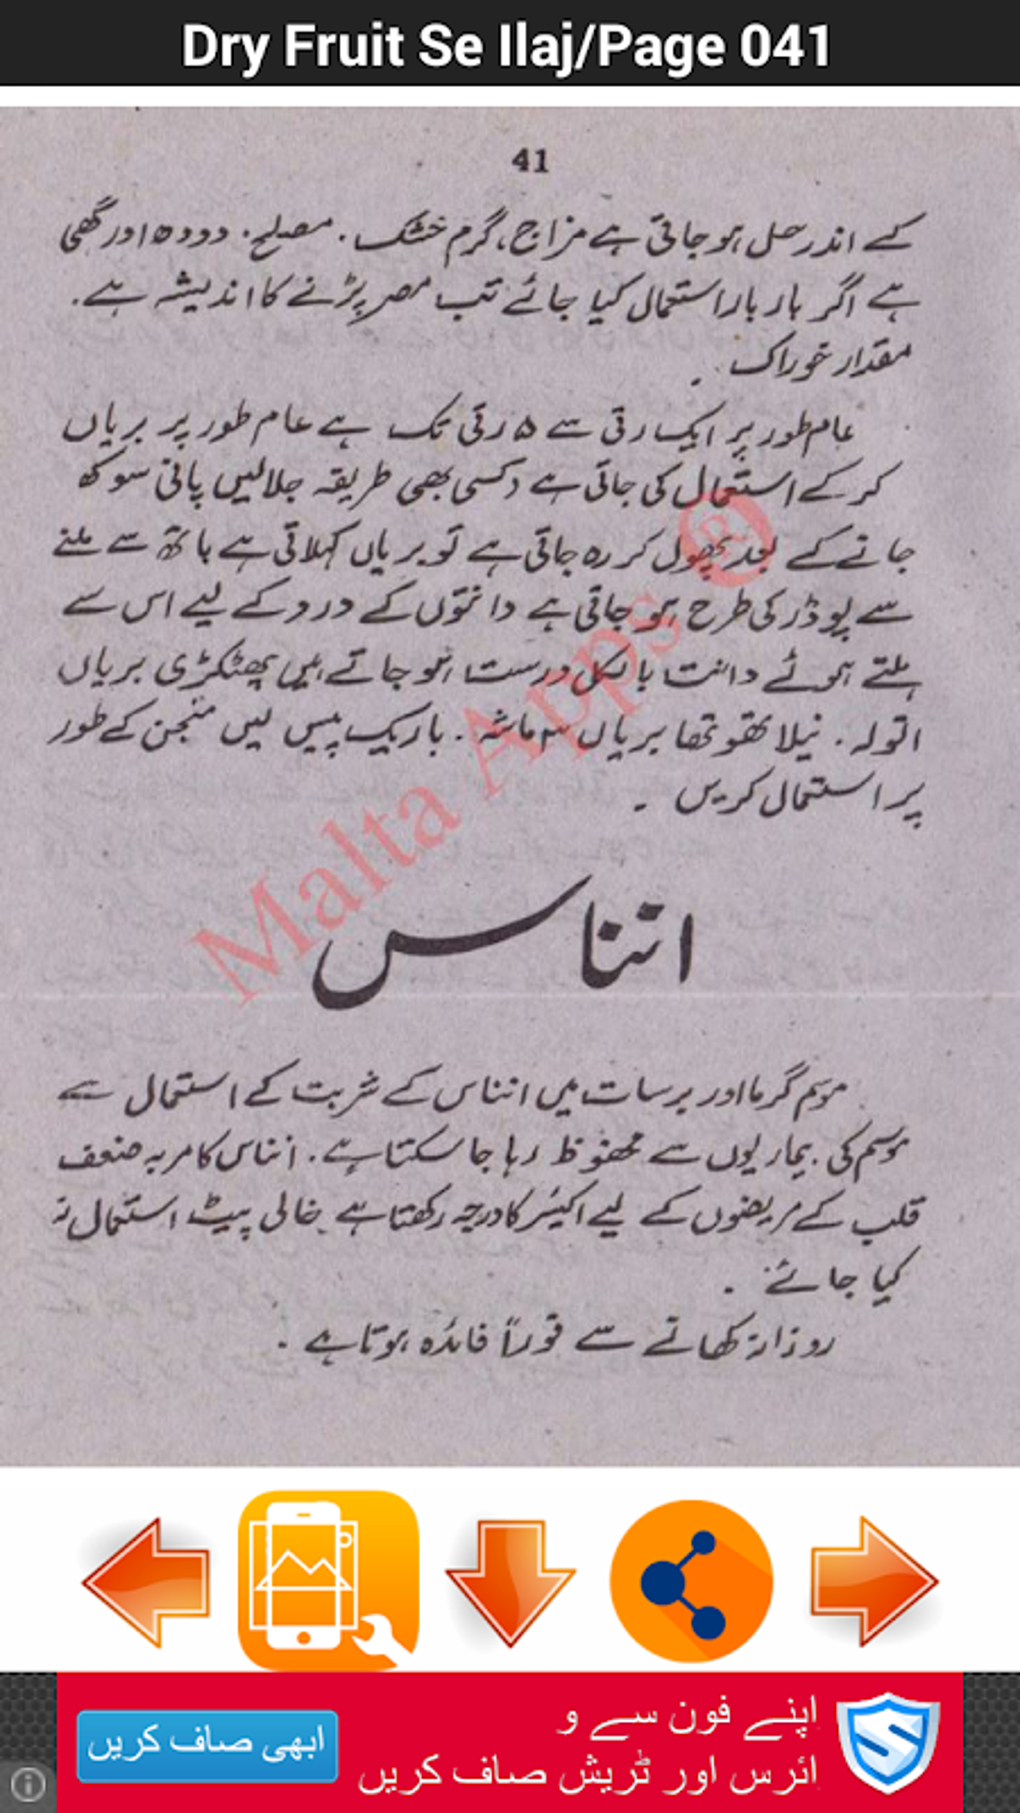 Dry Fruit Se Ilaj/Page 041
41
کے اندر حل ہو جاتی ہے مزاج، گرم خشک. مصلح. دودھ اور گھی
ہے اگر بار بار استعمال کیا جائے تب مصر پڑنے کا اندیشہ ہے.
مقدار خوراک.
عام طور پر ایک رتی سے ۵ رتی تک ہے عام طور پر بریاں
کر کے استعمال کی جاتی ہے کسی بھی طریقہ جلالیں پانی سوکھ
جانے کے بعد پھول کر رہ جاتی ہے تو بریاں کہلاتی ہے ہاتھ سے ملنے
سے پوڈر کی طرح ہو جاتی ہے دانتوں کے درد کے لیے اس سے
ہلتے ہوئے دانت بالکل درست ہو جاتے ہیں پھٹکڑی بریاں
اتولہ. نیلا تھوتھا بریاں ۳ ماشہ. باریک پیس لیں منجن کے طور
پر استعمال کریں -
Malta Apps ®
انناس
موسم گرما اور برسات میں انناس کے شربت کے استعمال سے
موسم کی بیماریوں سے محفوظ رہا جا سکتا ہے. انناس کا مربہ ضعف
قلب کے مریضوں کے لیے اکسیر کا درجہ رکھتا ہے خالی پیٹ استعمال نہ
کیا جائے.
روزانہ کھانے سے فوراً فائدہ ہوتا ہے.
اپنے فون سے و
ائرس اور ٹریش صاف کریں
ابھی صاف کریں